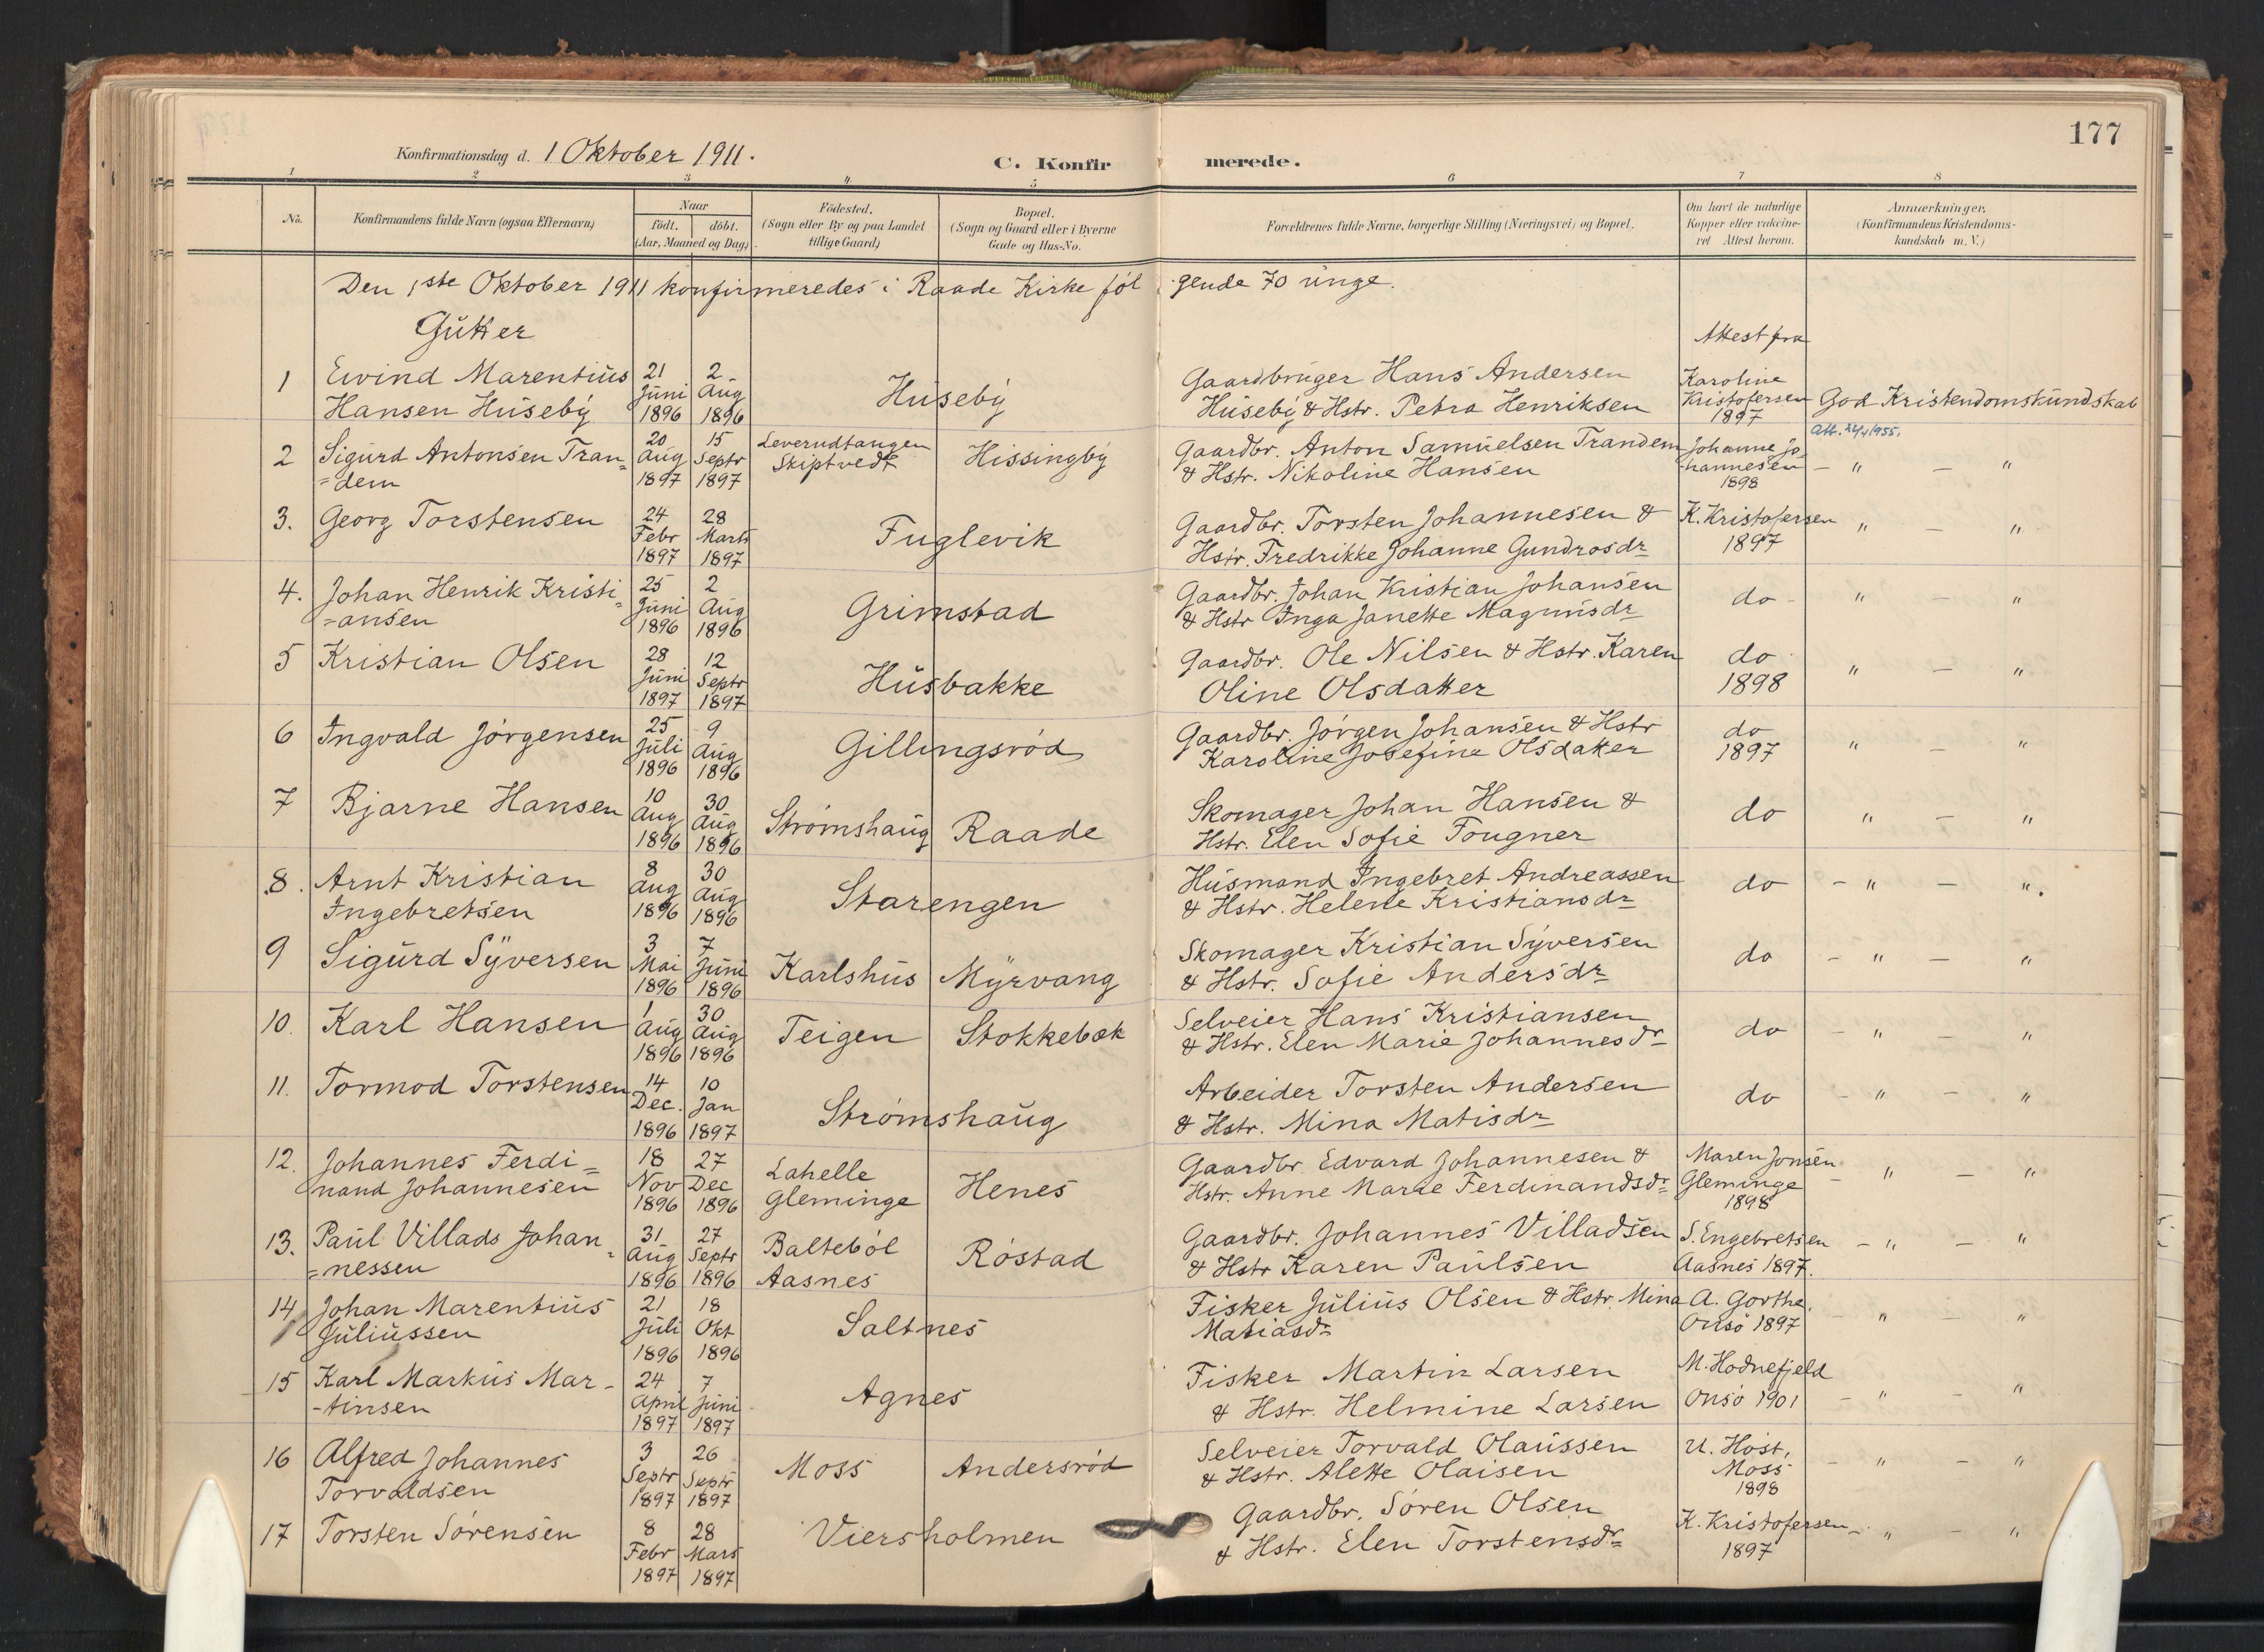 177
Konfirmationsdag d. 1 Oktober 1911.
C. Konfirmerede.
1 2 3 4 5 6 7 8
No.
Konfirmandens fulde Navn (ogsaa Efternavn)
Naar
født. døbt.
(Aar, Maaned og Dag)
Fødested.
(Sogn eller By og paa Landet
tillige Gaard)
Bopæl.
(Sogn og Gaard eller i Byerne
Gade og Hus-No.
Forældrenes fulde Navne, borgerlige Stilling (Næringsvei) og Bopæl.
Om havt de naturlige
Kopper eller vaccine-
ret Attest herom.
Anmærkninger.
(Konfirmandens Kristendoms-
kundskab m. V.)
Den 1ste Oktober 1911 konfirmeredes i Raade Kirke følgende 70 unge.
Gutter
Attest fra
1 Eivind Marentius 21 2 Gaardbruger Hans Andersen Karoline
Hansen Huseby Juni Aug Huseby Huseby & Hstr. Petra Henriksen Kristofersen God Kristendomskundskab
1896 1896 1897
2 Sigurd Antonsen Tran= 20 15 Leverudtangen Hissingby Gaardbr. Anton Samuelsen Trandem Johanne Jo- Att. 1955.
=dem Aug Septr Skiptvedt & Hstr. Nikoline Hansen hannesen - " - "
1897 1897 1898
3. Georg Torstensen 24 28 Gaardbr. Torsten Johannesen & K. Kristofersen " - "
Febr Marts Fuglevik Hstr. Fredrikke Johanne Gundrosdr 1897
1897 1897
4. Johan Henrik Kristi= 25 2 Gaardbr. Johan Kristian Johansen do - " - "
=ansen Juni Aug Grimstad & Hstr Inga Janette Magnusdr
1896 1896
5 Kristian Olsen 28 12 Gaardbr. Ole Nilsen & Hstr. Karen do
Juni Septr Husbakke Oline Olsdatter 1898 " - "
1897 1897
6 Ingvald Jørgensen 25 9 Gaardbr. Jørgen Johansen & Hstr do
Juli Aug Gillingsrød Karoline Josefine Olsdatter 1897 " - "
1896 1896
7 Bjarne Hansen 10 30 Skomager Johan Hansen & do " - "
Aug Aug Strømshaug Raade Hstr. Elen Sofie Fougner
1896 1896
8. Arnt Kristian 8 30 Husmand Ingebret Andreassen do - " - ".
Ingebretsen Aug Aug Starengen & Hstr. Helene Kristiansdr
1896 1896
9 Sigurd Syversen 3 7 Skomager Kristian Syversen do - " - "
Mai Juni Karlshus Myrvang & Hstr. Sofie Andersdr
1896 1896
10. Karl Hansen 1 30 Selveier Hans Kristiansen do - " - "
Aug Aug Teigen Stokkebæk & Hstr. Elen Marie Johannesdr
1896 1896
11. Tormod Torstensen 14 10 Arbeider Torsten Andersen do - " - "
Dec. Jan Strømshaug & Hstr. Mina Matisdr
1896 1897
12. Johannes Ferdi= 18 27 Lahelle Gaardbr. Edvard Johannesen & Maren Jonsen
nand Johannesen Nov Dec Gleminge Henes Hstr. Anne Marie Ferdinandsdr Gleminge - " - "
1896 1896 1898
13. Paul Villads Johan= 31 27 Baltebøl Gaardbr. Johannes Villadsen S. Engebretsen - " - "
=nessen Aug Septr Aasnes Røstad & Hstr Karen Paulsen Aasnes 1897.
1896 1896
14 Johan Marentius 21 18 Fisker Julius Olsen & Hstr. Mina A. Gorthe.
Juliussen Juli Okt Saltnes Matiasdr Onsø 1897 - " - "
1896 1896
15 Karl Markus Mar- 24 7 Fisker Martin Larsen M. Hodnefjeld
-tinsen April Juni Agnes & Hstr. Helmine Larsen Onsø 1901 - " - "
1897 1897
16 Alfred Johannes 3 26 Selveier Torvald Olaussen U. Høst,
Torvaldsen Septr Septr Moss Andersrød & Hstr. Alette Olaisen Moss - " - "
1897 1897 1898
17 Torsten Sørensen 8 28 Gaardbr. Søren Olsen K. Kristofersen - " - "
Febr Mars Viersholmen & Hstr. Elen Torstensdr 1897
1897 1897